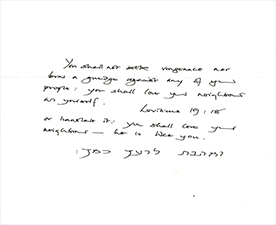 You shall not seek vengeance nor
bear a grudge against any of your
people: you shall love your neighbour
as yourself.
Leviticus 19:18
or translate it: you shall love your
neighbour — he is like you.
ואהבת לרעך כמך: